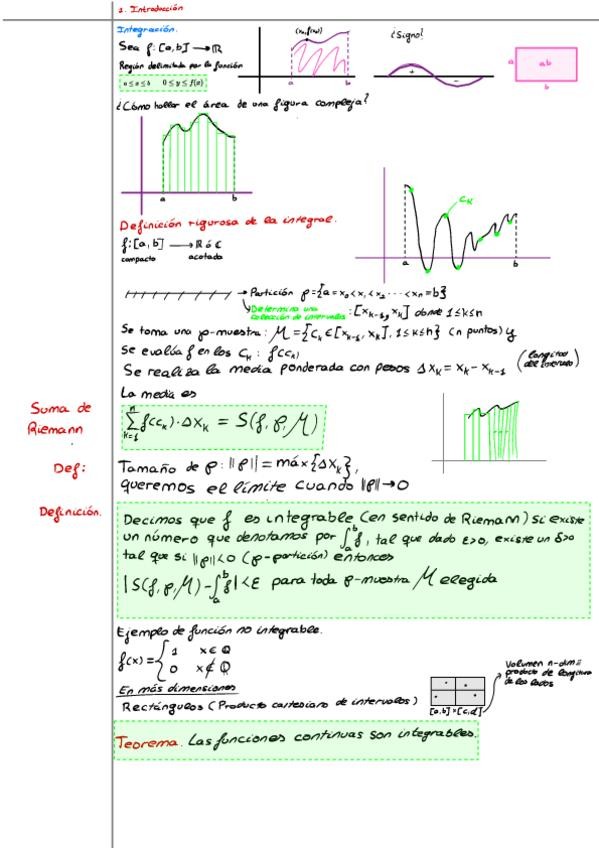 1. Introducción
Integración.
Sea f: [a,b] → ℝ
Región delimitada por la función
a ≤ x ≤ b   0 ≤ y ≤ f(x)
(x₀, f(x₀))
a b
¿Signo?
+ -
a ab
b
¿Cómo hallar el área de una figura compleja?
a b
Definición rigurosa de la integral.
f: [a,b] → ℝ ó ℂ
compacto acotada
c_k
a b
→ Partición ρ = {a = x₀ < x₁ < x₂ ... < xₙ = b}
Determina una colección de intervalos: [x_{k-1}, x_k] donde 1 ≤ k ≤ n
Se toma una ρ-muestra: M = {c_k ∈ [x_{k-1}, x_k], 1 ≤ k ≤ n} (n puntos) y
Se evalúa f en los c_k : f(c_k)
Se realiza la media ponderada con pesos Δx_k = x_k - x_{k-1} (longitud del intervalo)
La media es
Suma de
Riemann
∑_{k=1}^{n} f(c_k)·Δx_k = S(f, ρ, M)
Def:
Tamaño de ρ: ||ρ|| = máx {Δx_k},
queremos el límite cuando ||ρ|| → 0
Definición.
Decimos que f es integrable (en sentido de Riemann) si existe
un número que denotamos por ∫_a^b f, tal que dado ε>0, existe un δ>0
tal que si ||ρ|| < 0 (ρ-partición) entonces
|S(f, ρ, M) - ∫_a^b f| < ε para toda ρ-muestra M elegida
Ejemplo de función no integrable.
f(x) = { 1   x ∈ ℚ
0   x ∉ ℚ
En más dimensiones
Rectángulos (Producto cartesiano de intervalos)
[a,b] × [c,d]
Volumen n-dim =
producto de longitud
de los lados
Teorema. Las funciones continuas son integrables.